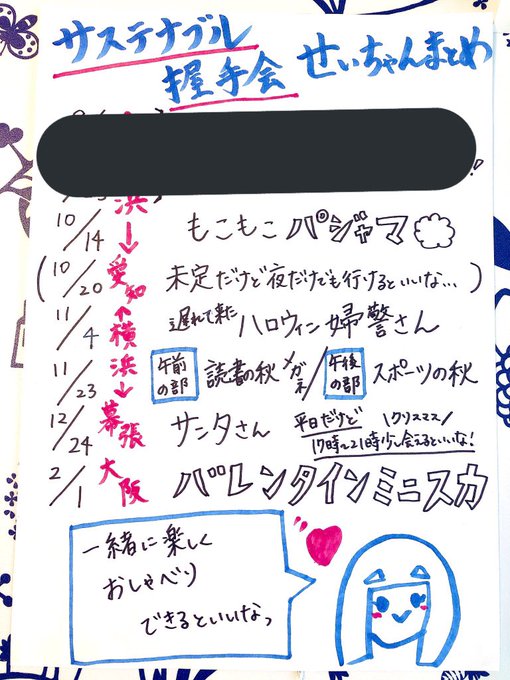 サステナブル
握手会 せいちゃんまとめ
浜
10/14 ↓ もこもこパジャマ
(10/20 愛知 未定だけど夜だけでも行けるといいな…)
11/4 ↑横 遅れて来たハロウィン婦警さん
11/23 浜↓ 午前の部 読書の秋 メガネ/午後の部 スポーツの秋
12/24 幕張 サンタさん 平日だけど \クリスマス/
17時~21時少し会えるといいな!
2/1 大阪 バレンタインミニスカ
一緒に楽しく
おしゃべり
できるといいなっ